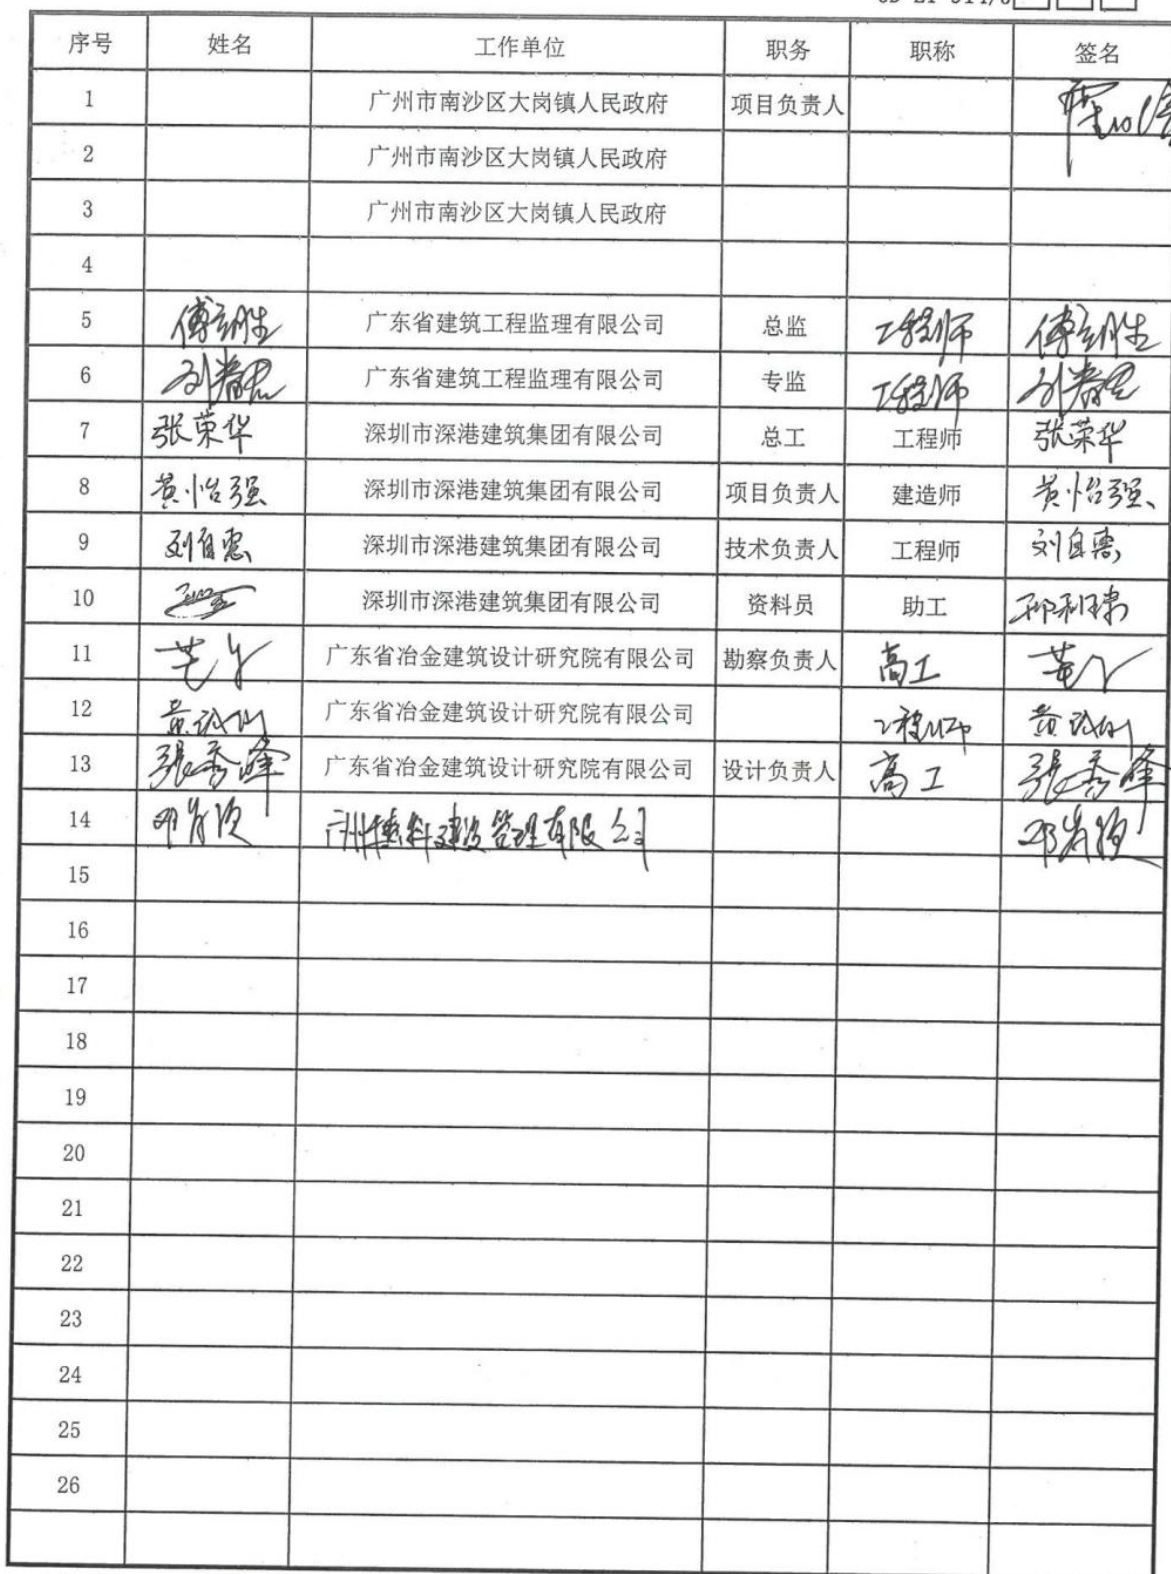 序号 姓名 工作单位 职务 职称 签名
1 广州市南沙区大岗镇人民政府 项目负责人
2 广州市南沙区大岗镇人民政府
3 广州市南沙区大岗镇人民政府
4
5 广东省建筑工程监理有限公司 总监 工程师
6 广东省建筑工程监理有限公司 专监 工程师
7 张荣华 深圳市深港建筑集团有限公司 总工 工程师 张荣华
8 黄怡强 深圳市深港建筑集团有限公司 项目负责人 建造师 黄怡强
9 刘自惠 深圳市深港建筑集团有限公司 技术负责人 工程师 刘自惠
10 深圳市深港建筑集团有限公司 资料员 助工
11 广东省冶金建筑设计研究院有限公司 勘察负责人 高工
12 广东省冶金建筑设计研究院有限公司 工程师
13 張秀峰 广东省冶金建筑设计研究院有限公司 设计负责人 高工 張秀峰
14 建设管理有限公司
15
16
17
18
19
20
21
22
23
24
25
26